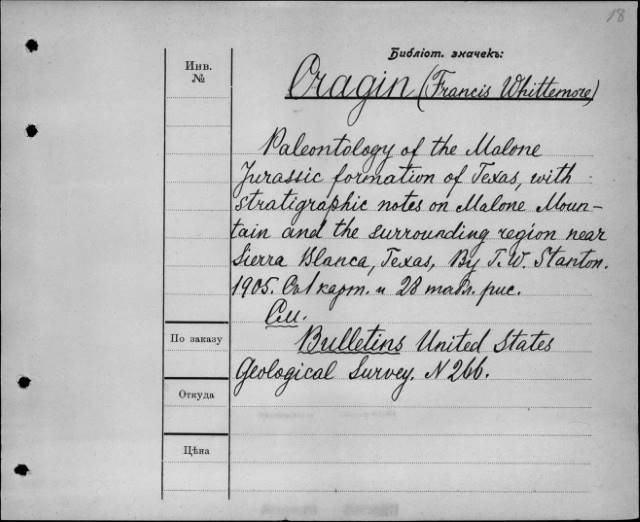 18
Библіот. значекъ:
Инв.
№
Cragin (Francis Whittemore)
Paleontology of the Malone
Jurassic formation of Texas, with
stratigraphic notes on Malone Moun-
tain and the surrounding region near
Sierra Blanca, Texas, By T. W. Stanton.
1905. Съ 1 карт. и 28 табл. рис.
См.
Bulletins United States
Geological Survey. N 266.
По заказу
Откуда
Цѣна